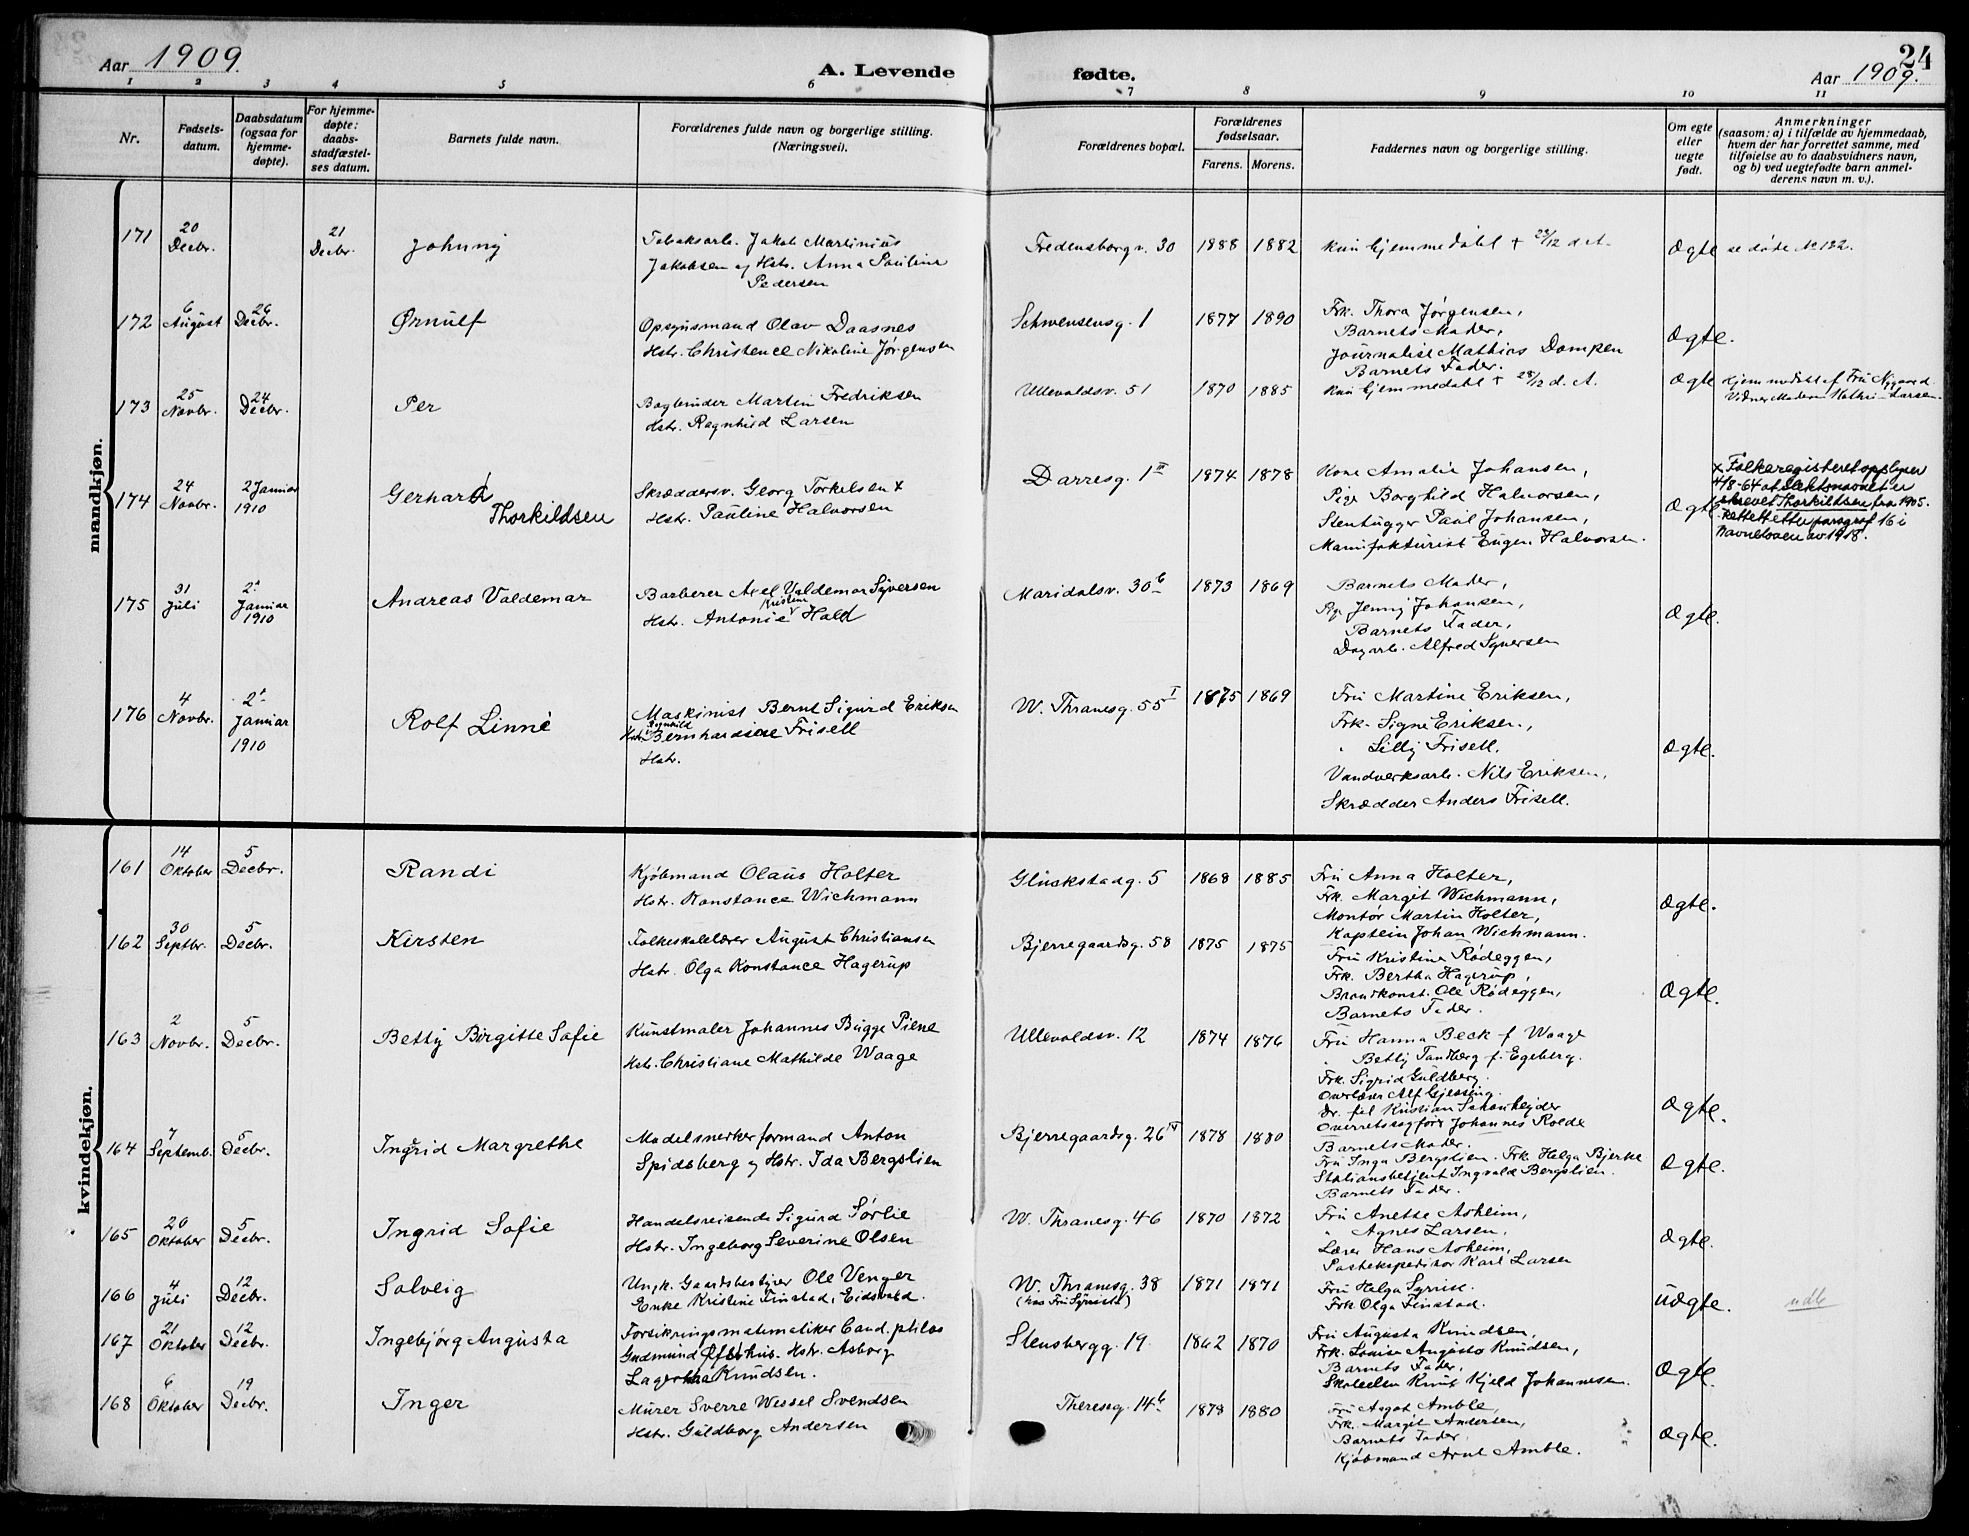 Aar 1909.
A. Levende fødte.
24
Aar 1909.
1 2 3 4 5 6 7 8 9 10 11
Nr.
Fødsels-
datum.
Daabsdatum
(ogsaa for
hjemme-
døpte).
For hjemme-
døpte:
daabs-
stadfæstel-
ses datum.
Barnets fulde navn.
Forældrenes fulde navn og borgerlige stilling.
(Næringsvei).
Forældrenes bopæl.
Forældrenes
fødselsaar.
Farens. Morens.
Faddernes navn og borgerlige stilling.
Om egte
eller
uegte
født.
Anmerkninger
(saasom: a) i tilfælde av hjemmedaab,
hvem der har forrettet samme, med
tilføielse av to daabsvidners navn,
og b) ved uegtefødte barn anmel-
derens navn m. v.).
mandkjøn.
171 20 Decbr. 21 Decbr. Johnny
Tobaksarb. Jakob Martinius
Jakobsen og Hstr. Anna Pauline
Pedersen
Fredensborgv. 30 1888 1882
Kun hjemmedøbt + 29/12 d. A.
Ægte se døde No 132.
172 6 August 26 Decbr. Ørnulf
Opsynsmand Olav Daasnes
Hstr. Christence Nikoline Jørgensen
Schwensensg. 1 1877 1890
Frk. Thora Jørgensen,
Barnets Moder,
Journalist Mathias Dompen
Barnets Fader.
Ægte.
173 25 Novbr. 24 Decbr. Per
Bogbinder Martin Fredriksen
Hstr. Ragnhild Larsen
Ullevoldsv. 51 1870 1885
Kun hjemmedøbt + 28/12 d. A.
Ægte Hjemmedøbt af Fru Nygaard
Vidner Moderen Kathri Larsen.
174 24 Novbr. 2 Januar 1910 Gerhard
Thorkildsen
Skræddersv. Georg Torkelsen x
Hstr. Pauline Halvorsen
Darresg. 1 III 1874 1878
Kone Amalie Johansen,
Pige Borghild Halvorsen,
Stenhugger Paul Johansen,
Manufakturist Eugen Halvorsen.
Ægte
x Folkeregisteret opplyser
4/8-64 at slektsnavnet er
skrevet Thorkildsen fra 1905.
Rettet etter paragraf 16 i
Navneloven av 1918.
175 31 Juli 2. Januar 1910 Andreas Valdemar
Barberer Axel Valdemar Syversen
Hstr. Antonie Kristine Hald
Maridalsv. 30 b 1873 1869
Barnets Moder,
Pg. Jenny Johansen,
Barnets Fader,
Dagarb. Alfred Syversen
Ægte.
176 4 Novbr. 2. Januar 1910 Rolf Linné
Maskinist Bernt Sigurd Eriksen
Hstr. Bernhardine Frisell
Hstr.
W. Thranesg. 55 I 1875 1869
Fru Martine Eriksen,
Frk. Signe Eriksen.,
" Lilly Frisell.
Vandverksarb. Nils Eriksen,
Skrædder Anders Frisell.
Ægte.
kvindekjøn.
161 14 Oktober 5 Decbr. Randi
Kjøbmand Olaus Holter
Hstr. Konstance Wichmann
Glückstadg. 5 1868 1885
Fru Anna Holter,
Frk. Margit Wichmann,
Montør Martin Holter,
Kaptein Johan Wichmann.
Ægte.
162 30 Septbr. 5 Decbr. Kirsten
Folkeskolelærer August Christiansen
Hstr. Olga Konstance Hagerup
Bjerregaardsg. 58 1875 1875
Fru Kristine Rødeggen,
Frk. Bertha Hagerup,
Brandkonst. Ole Rødeggen,
Barnets Fader.
Ægte.
163 2 Novbr. 5 Decbr. Betty Birgitte Sofie
Kunstmaler Johannes Bugge Piene
Hstr. Christiane Mathilde Waage
Ullevoldsv. 12 1874 1876
Fru Hanna Beck f. Waage
" Betty Tandberg f. Egeberg.
Frk. Sigrid Guldberg.
Overlærer Alf Gjessing.
Dr. fil Kristian Schønheyder
Overretssagfører Johannes Rolde
Ægte.
164 7 Septemb. 5 Decbr. Ingrid Margrethe
Modelsnekkerformand Anton
Spidsberg og Hstr. Ida Bergslien
Bjerregaardsg. 26 IV 1878 1880
Barnets Moder.
Fru Inga Bergslien. Frk. Helga Bjerke
Stationsbetjent Ingvald Bergslien.
Barnets Fader.
Ægte.
165 20 Oktober 5 Decbr. Ingrid Sofie
Handelsreisende Sigurd Sørlie
Hstr. Ingeborg Severine Olsen
W. Thranesg. 46 1870 1872
Fru Anette Asheim,
" Agnes Larsen,
Lærer Hans Asheim,
Postekspeditor Karl Larsen
Ægte.
166 4 Juli 12 Decbr. Solveig
Ungk. Gaardsbestyrer Ole Venger
Enke Kristine Finstad, Eidsvold.
W. Thranesg. 38
(hos Fru Syrrist) 1871 1871
Fru Helga Syrrist.
Frk. Olga Finstad.
Uægte. udb
167 21 Oktober 12 Decbr. Ingebjørg Augusta
Forsikringsmatematiker Cand. philos
Gudmund Hstr. Asborg
Lagertha Knudsen.
Stensbergg. 19. 1862 1870
Fru Augusta Knudsen,
Frk. Louise Augusta Knudsen,
Barnets Fader,
Skoleelev Knut Kjeld Johannesen.
Ægte.
168 6 Oktober 19 Decbr. Inger
Murer Sverre Wessel Svendsen
Hstr. Guldborg Andersen
Theresesg. 14 b 1878 1880
Fru Aagot Amble,
Frk. Margit Andersen,
Barnets Fader,
Kjøbmand Arnt Amble.
Ægte.